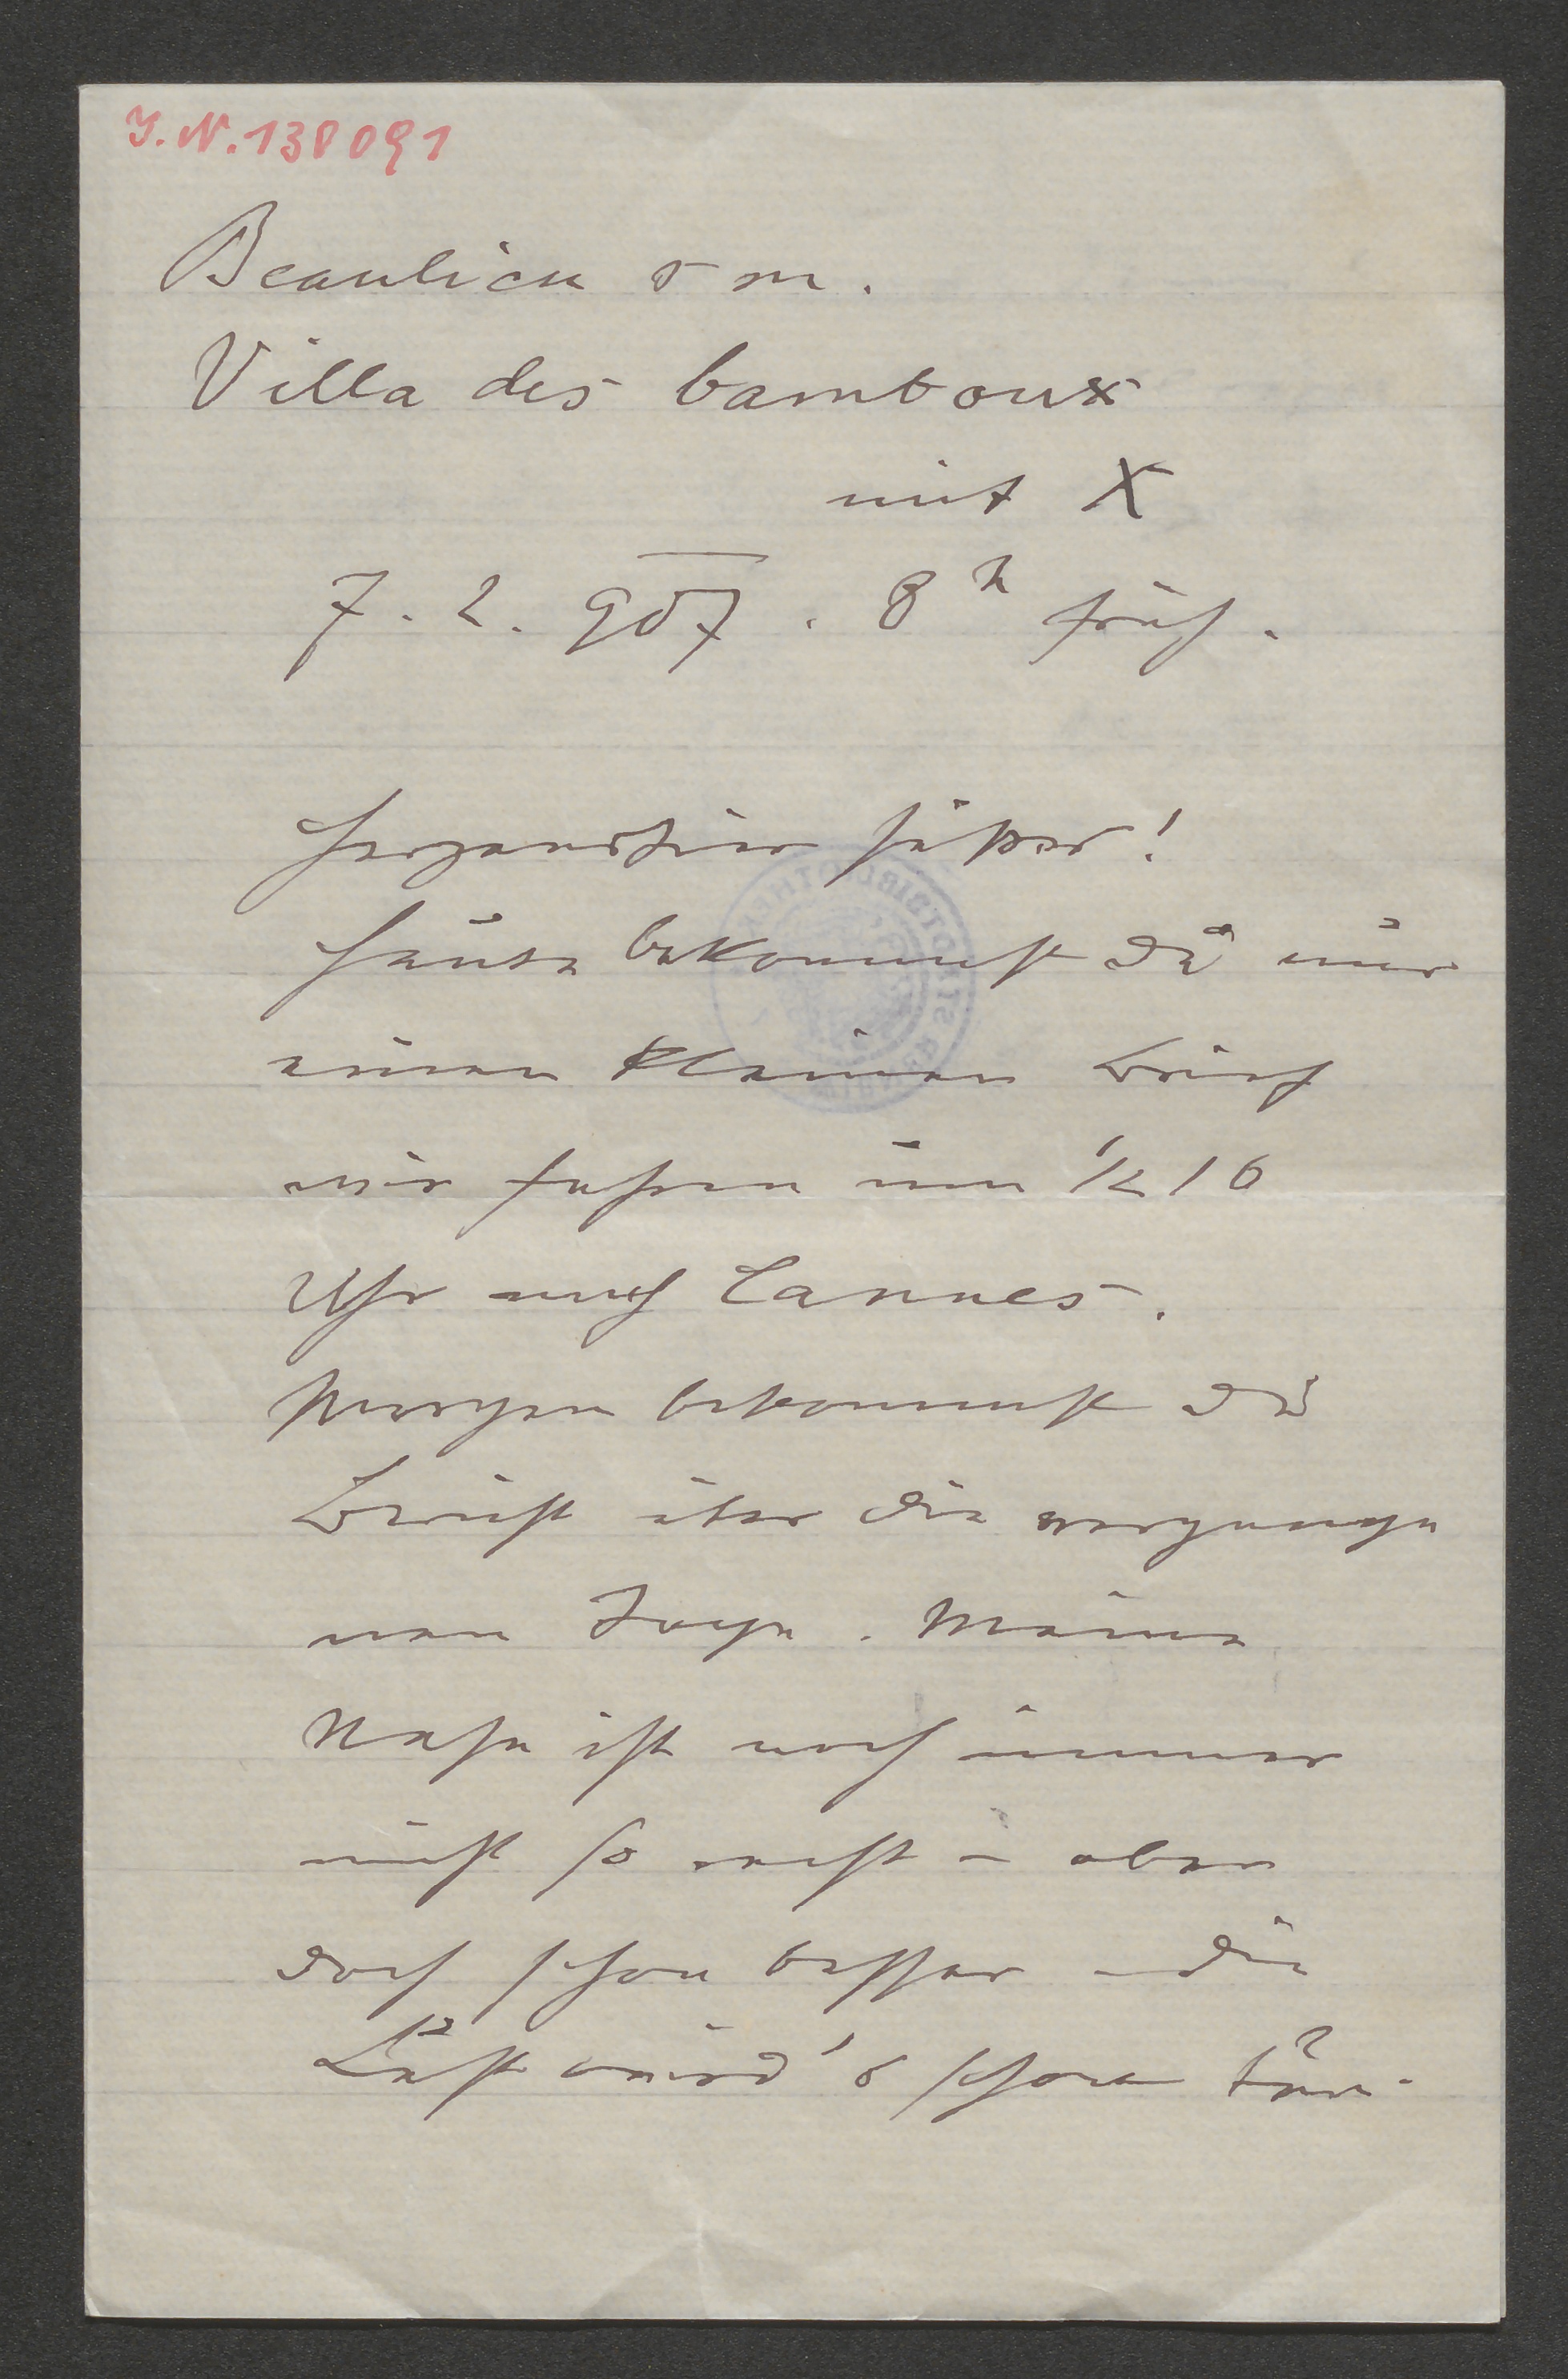 J. N. 138091
Beaulieu s m.
Villa des bamboux
mit X
7. 2. 907. 8h früh.
süßer!
heute bekommst du nur
einen kleinen Brief
wir fahren um ½ 10
Uhr nach Cannes.
Morgen bekommst du
Bericht über die vergange
nen Tage. Meine
Nase ist noch immer
nicht so recht – aber
doch schon besser – die
Luft wird's schon tun.